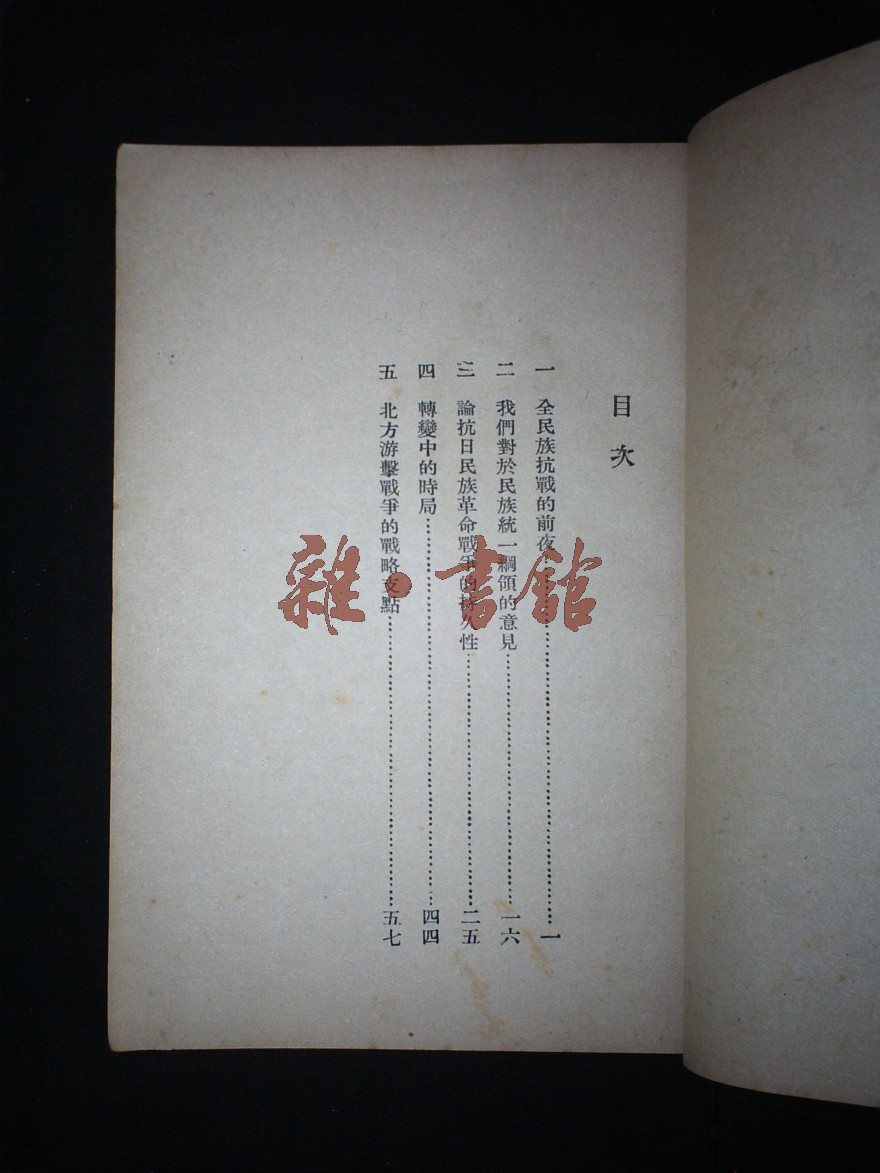 目次
一 全民族抗戰的前夜……一
二 我們對於民族統一綱領的意見……一六
三 論抗日民族革命戰爭的持久性……二五
四 轉變中的時局……四四
五 北方游擊戰爭的戰略支點……五七
雜·書館